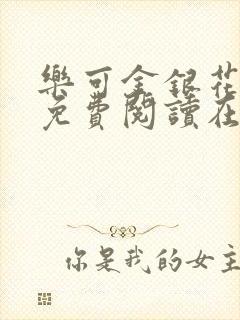 樂可金銀花
免費閱讀在
你是我的女主